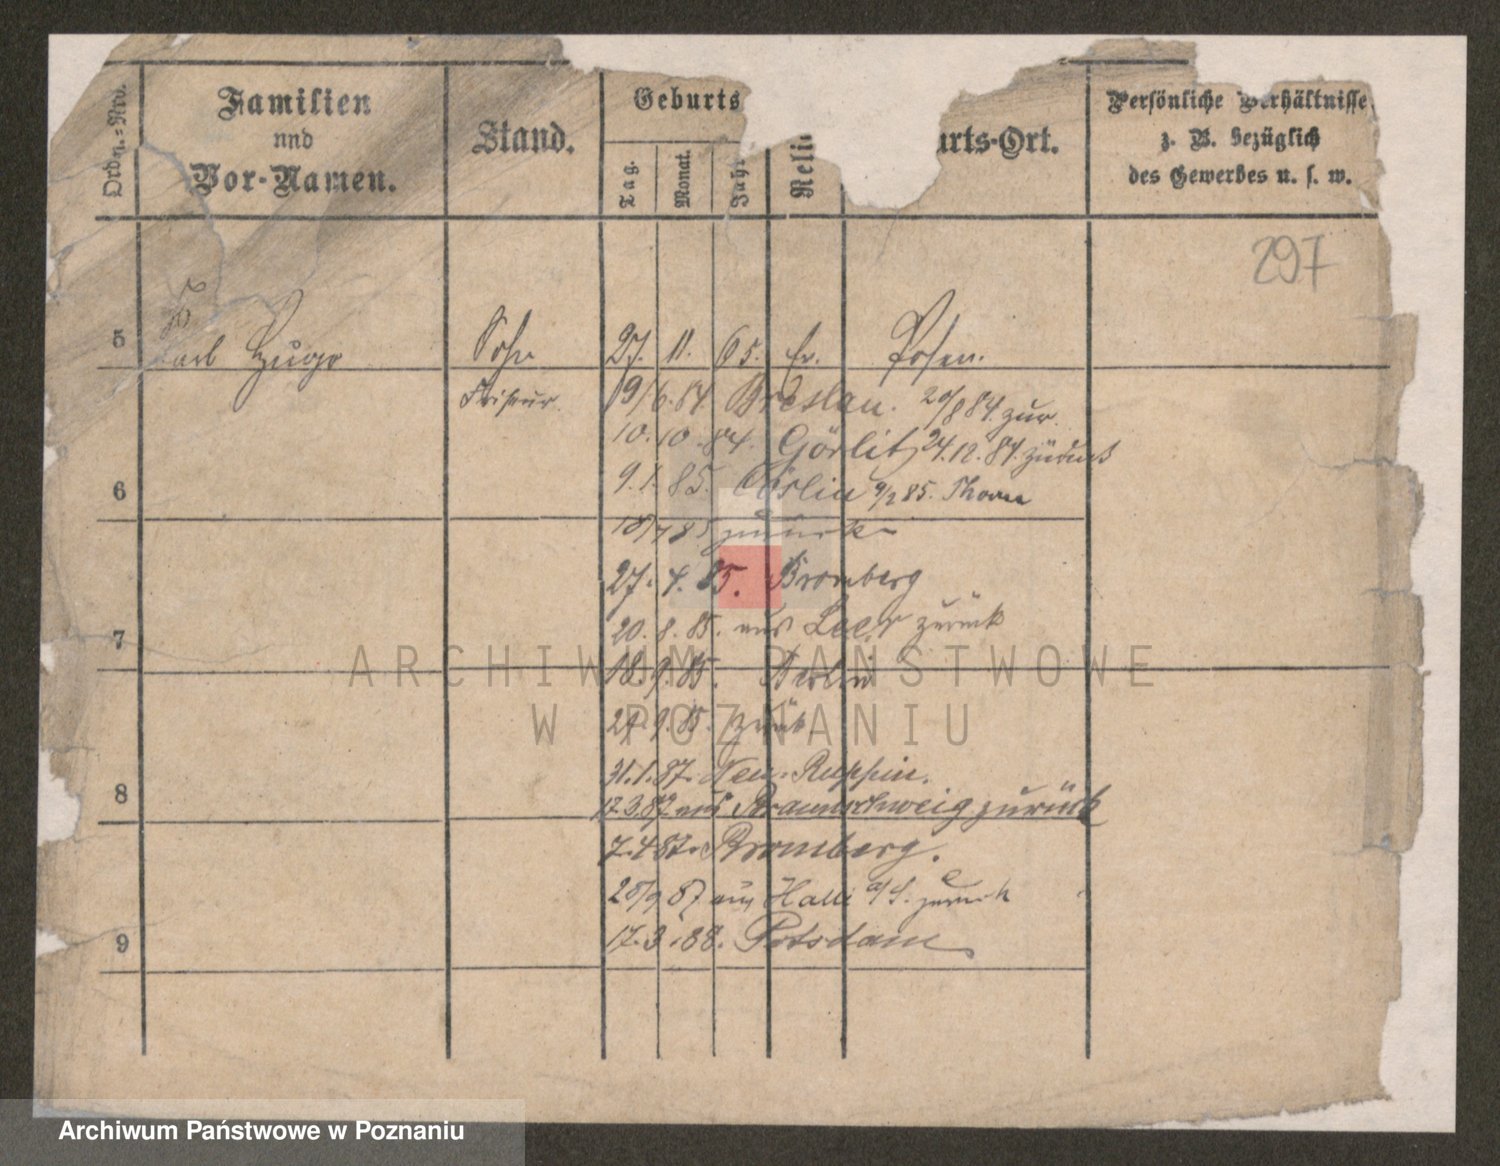 Ordn.-Nro.
Familien
und
Vor-Namen.
Stand.
Geburts
Tag.
Monat.
Jahr
Reli
urts-Ort.
Persönliche Verhältnisse
z. B. bezüglich
des Gewerbes u. s. w.
297
5 Carl Hugo Sohn 27. 11. 65. Ev. Posen.
Friseur 19/6. 84 Breslau. 20/8 84. zur.
10. 10. 84. Görlitz 24. 12. 84. zurück
6 9. 1. 85. Cöslin 9/2 85. Thorn
18/4 85 zurück
27. 4. 85. Bromberg
7 20. 8. 85. aus Leer zurück
18. 9. 85. Berlin
29. 9. 85. zurück
31. 1. 87. Neu-Ruppin.
8 17. 3. 87 aus Braunschweig zurück
7. 4 87. Bromberg.
28/9 87 aus Halle a/S. zurück
9 17. 3. 88. Potsdam
ARCHIWUM PAŃSTWOWE
W POZNANIU
Archiwum Państwowe w Poznaniu